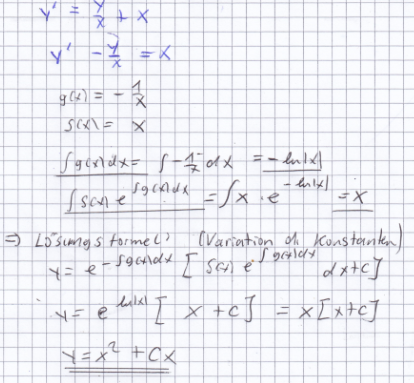 y' = y/x + x
y' - y/x = x
g(x) = - 1/x
s(x) = x
∫g(x)dx = ∫-1/x dx = -ln|x|
∫s(x) e^∫g(x)dx = ∫x · e^-ln|x| = x
⇒ Lösungsformel: (Variation d. Konstanten)
y = e^-∫g(x)dx [ s(x) e^∫g(x)dx dx+c]
y = e^ln|x| [ x + c ] = x[x+c]
y = x² + Cx